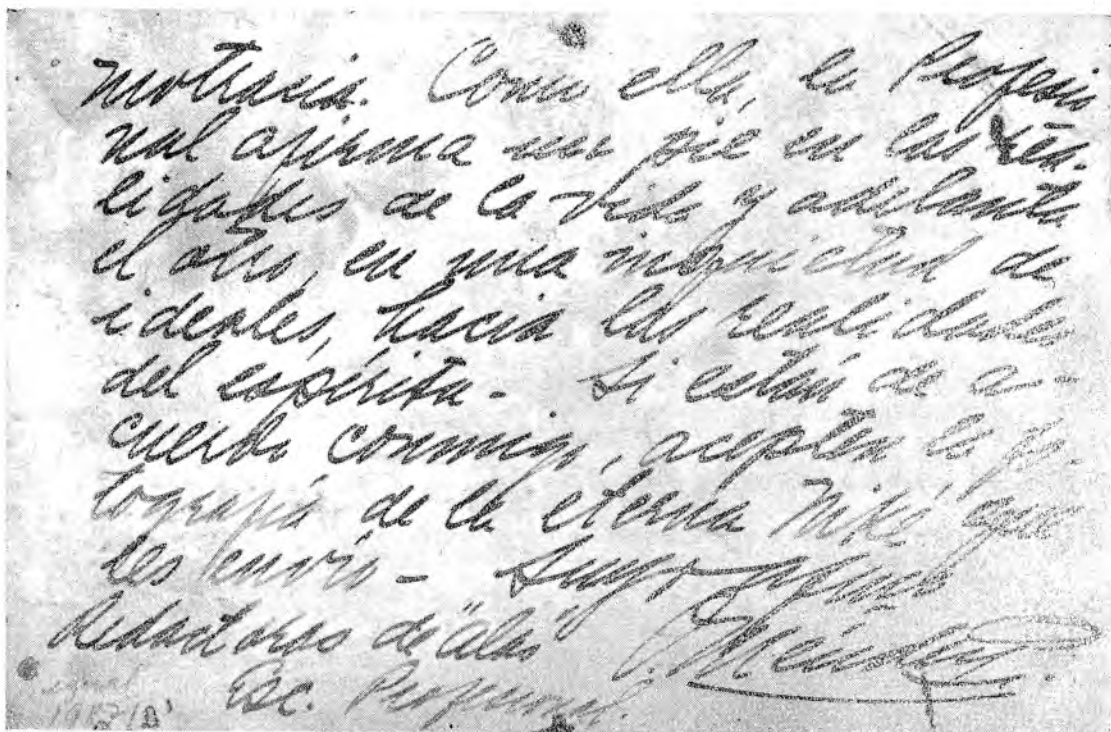 motracia. Como ella, la Profesio
nal afirma un pie en las rea-
lidades de la vida y adelanta
el otro, en una inquietud de
ideales, hacia las realidades
del espíritu - Si están de a-
cuerdo conmigo, acepten la fo-
tografía de la eterna Niké que
les envío - Suyo afmo
Redactoras de "alas"
Esc. Profesional.